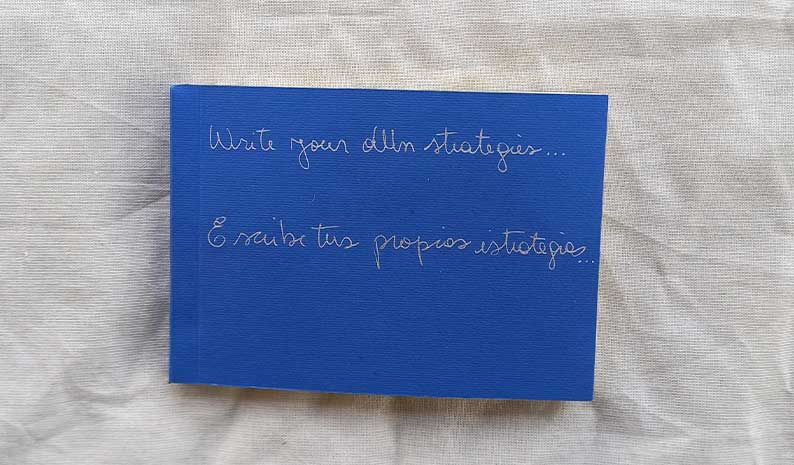 Write your own strategies...
Escribe tus propias estrategias...